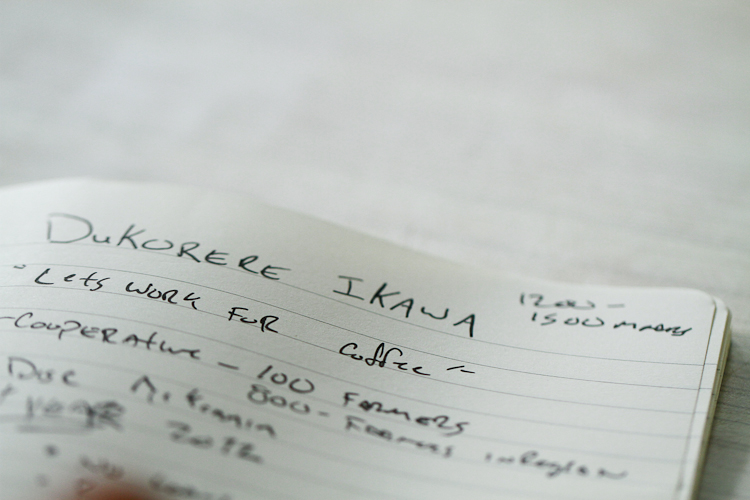 DUKORERE IKAWA
1200 -
1500 meters
"Lets work for coffee"
- Cooperative - 100 farmers
800 - Farmers in Region
Due
2012